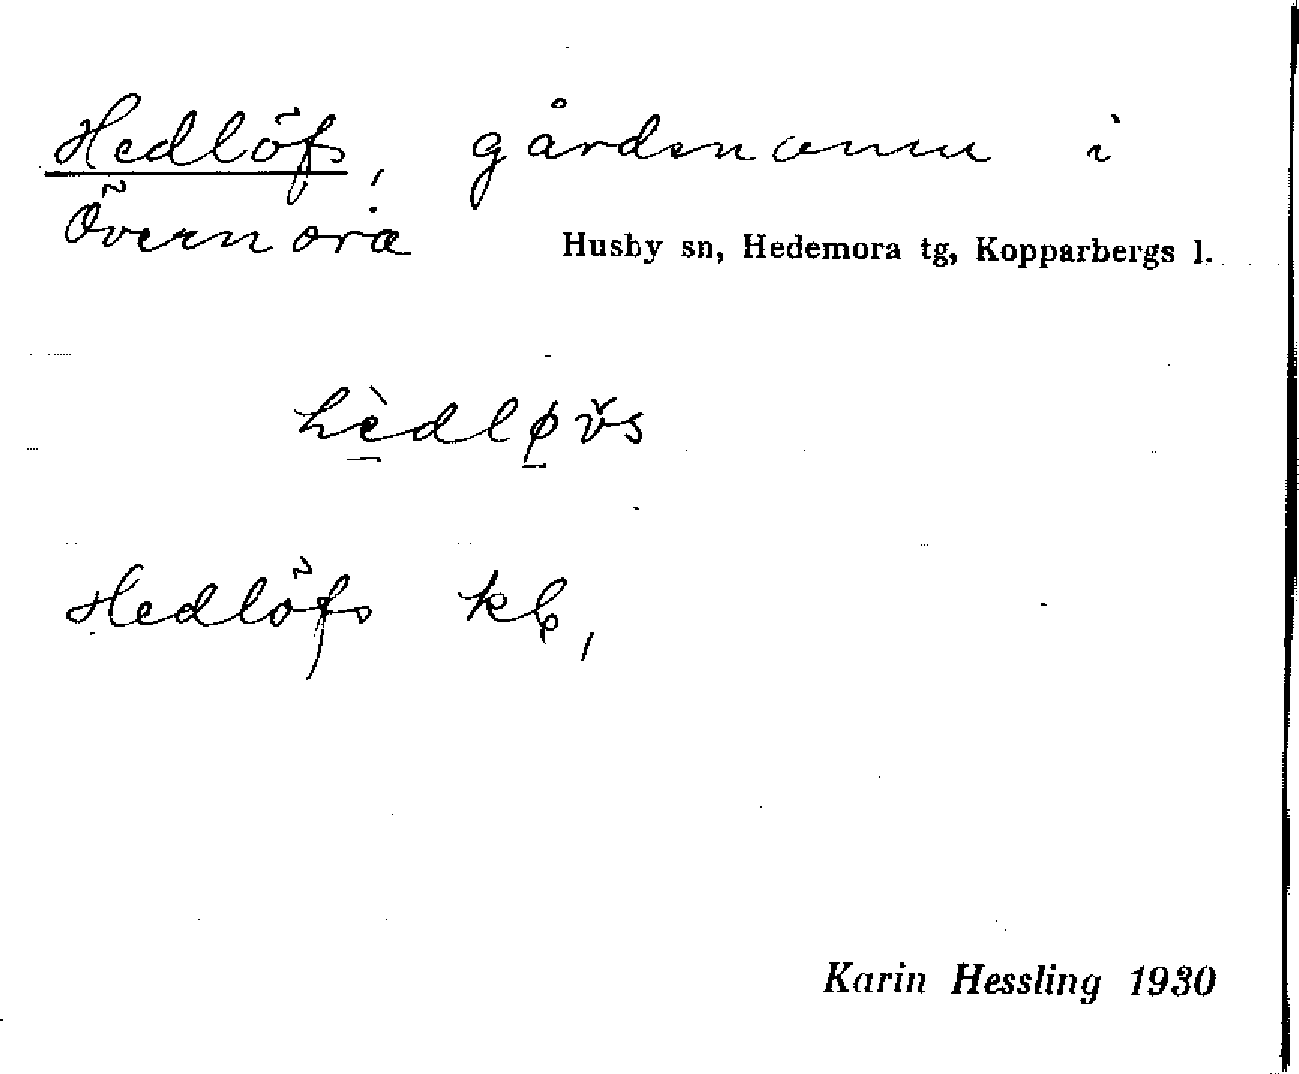 Hedlöfs, gårdsnamn i
Övernora Husby sn, Hedemora tg, Kopparbergs l.
hèdløvs
Hedlöfs kb,
Karin Hessling 1930